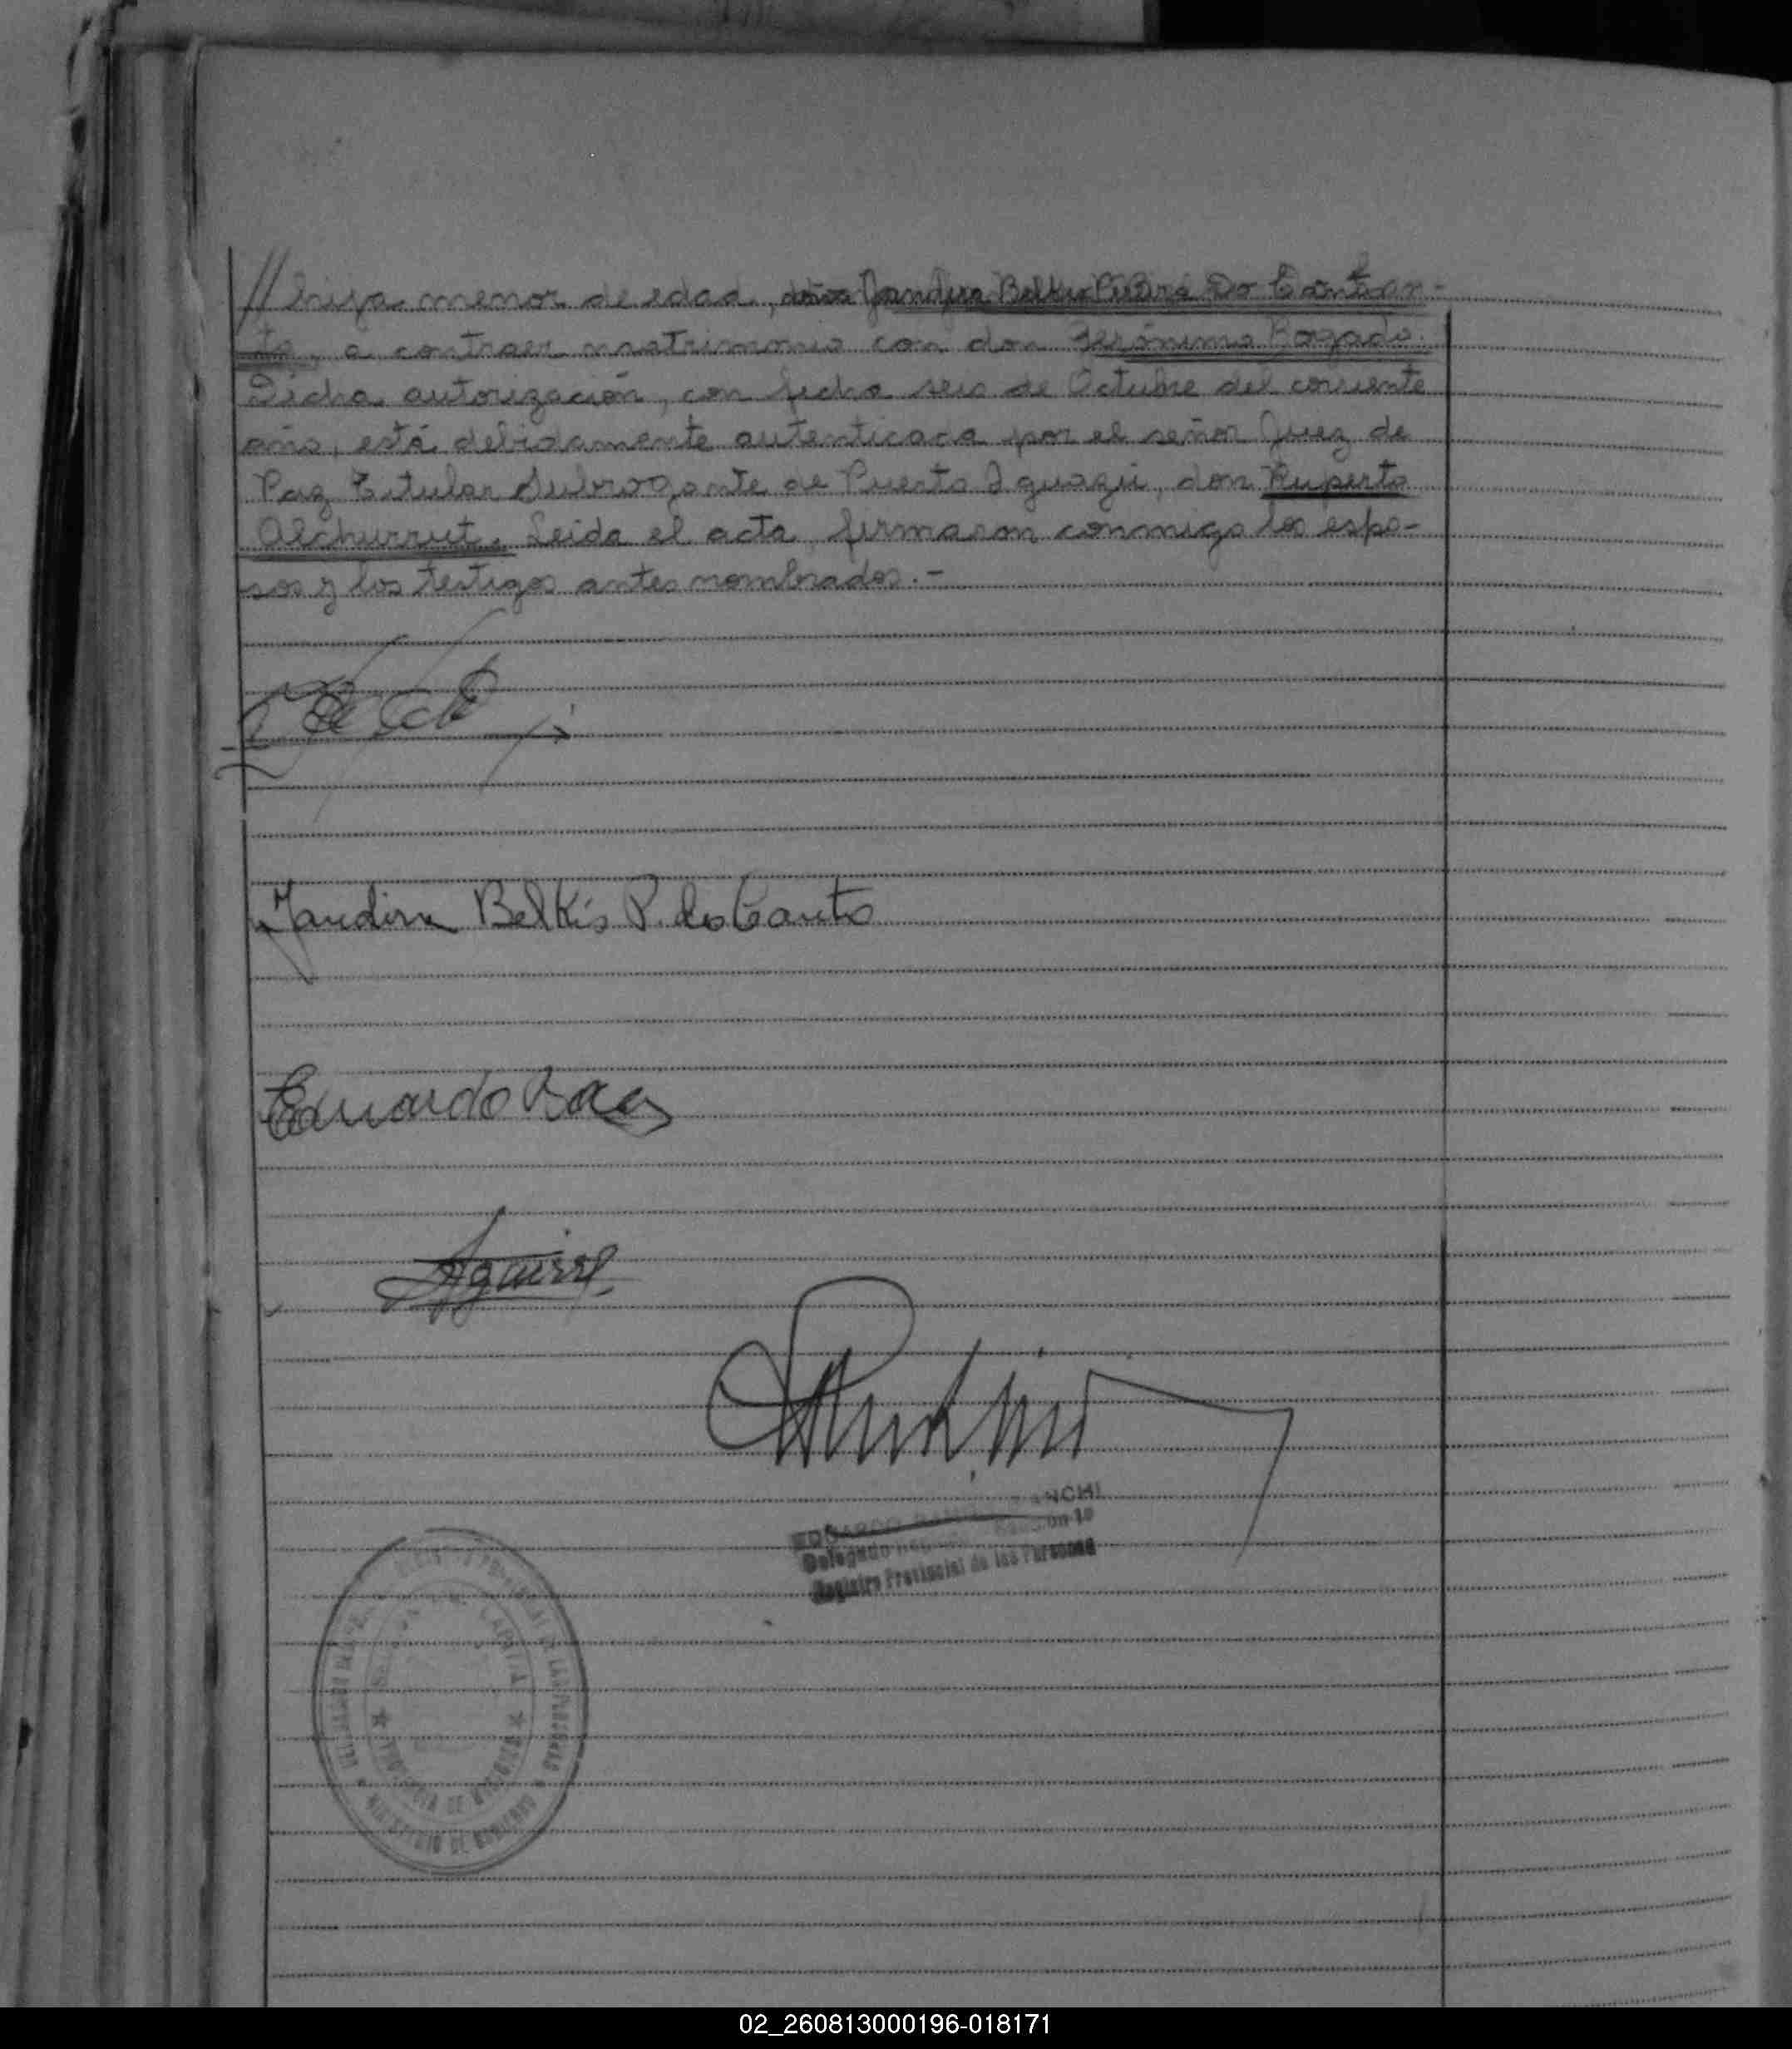 // hija menor de edad, doña Jandira Belkis Pereira Do Cantan-
to, a contraer matrimonio con don Gerónimo Bogado.
Dicha autorización, con fecha seis de Octubre del corriente
año, está debidamente autenticada por el señor Juez de
Paz Titular Subrogante de Puerto Iguazú, don Ruperto
Alchurrut. Leida el acta, firmaron conmigo los espo-
sos y los testigos antes nombrados.-
Jandira Belkis P. do Canto
Eduardo Baez
Aguirre
Delegado
Registro Provincial de las Personas
PROVINCIA DE MISIONES
MINISTERIO DE GOBIERNO
02_260813000196-018171